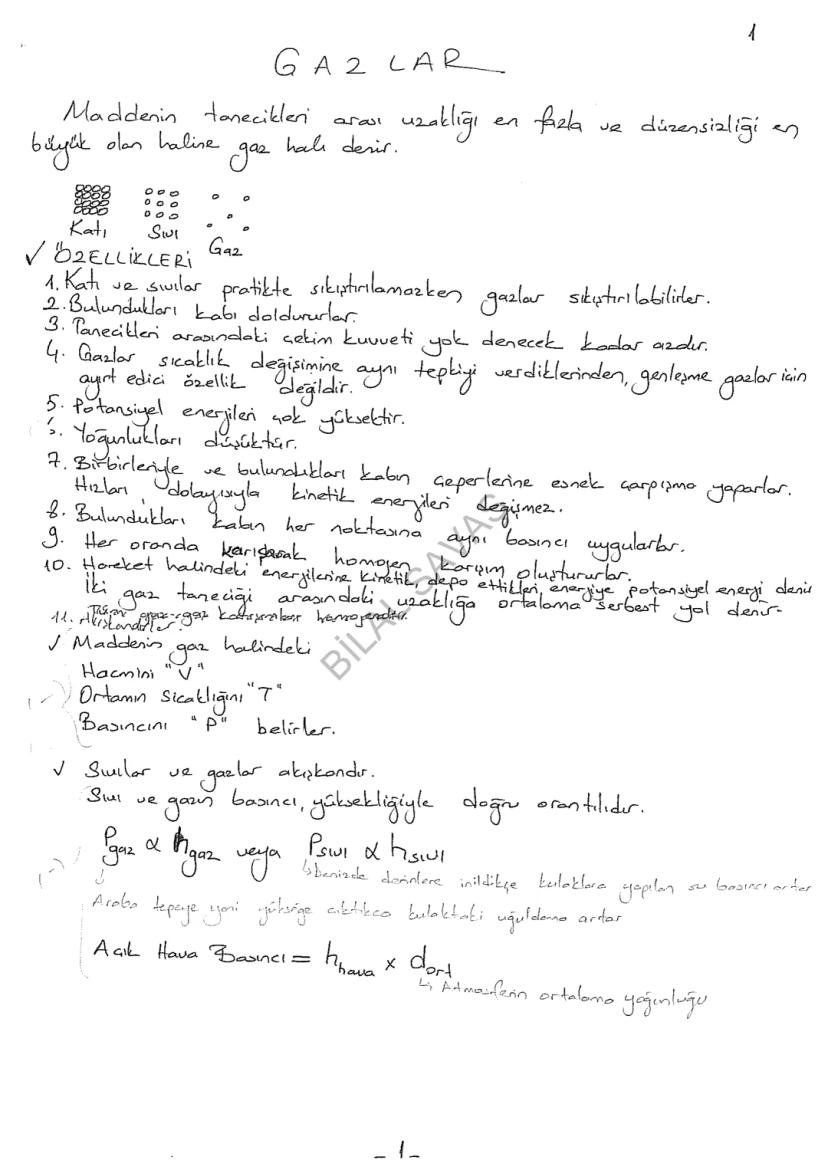 1
GAZLAR
Maddenin tanecikleri arası uzaklığı en fazla ve düzensizliği en
büyük olan haline gaz hali denir.
Katı Sıvı Gaz
√ ÖZELLİKLERİ
1. Katı ve sıvılar pratikte sıkıştırılamazken gazlar sıkıştırılabilirler.
2. Bulundukları kabı doldururlar.
3. Tanecikleri arasındaki çekim kuvveti yok denecek kadar azdır.
4. Gazlar sıcaklık değişimine aynı tepkiyi verdiklerinden, genleşme gazlar için
ayırt edici özellik değildir.
5. Potansiyel enerjileri çok yüksektir.
Yoğunlukları düşüktür.
7. Birbirleriyle ve bulundukları kabın çeperlerine esnek çarpışma yaparlar.
Hızları, dolayısıyla kinetik enerjileri değişmez.
8. Bulundukları kabın her noktasına aynı basıncı uygularlar.
9. Her oranda karışarak homojen karışım oluştururlar.
10. Hareket halindeki enerjilerine kinetik, depo ettikleri enerjiye potansiyel enerji denir
İki gaz taneciği arasındaki uzaklığa ortalama serbest yol denir.
11. Akışkandırlar. gaz-gaz karışımları homojendir.
√ Maddenin gaz halindeki
Hacmini "V"
Ortamın Sıcaklığını "T"
Basıncını "P" belirler.
√ Sıvılar ve gazlar akışkandır.
Sıvı ve gazın basıncı, yüksekliğiyle doğru orantılıdır.
Pgaz α hgaz veya Psıvı α hsıvı
↳ Denizde derinlere inildikçe kulaklara yapılan su basıncı artar
Araba tepeye yani yükseğe çıktıkça kulaktaki uğuldama artar
Açık Hava Basıncı = hhava x dort
↳ Atmosferin ortalama yoğunluğu
BİLAL SAVAŞ
-1-